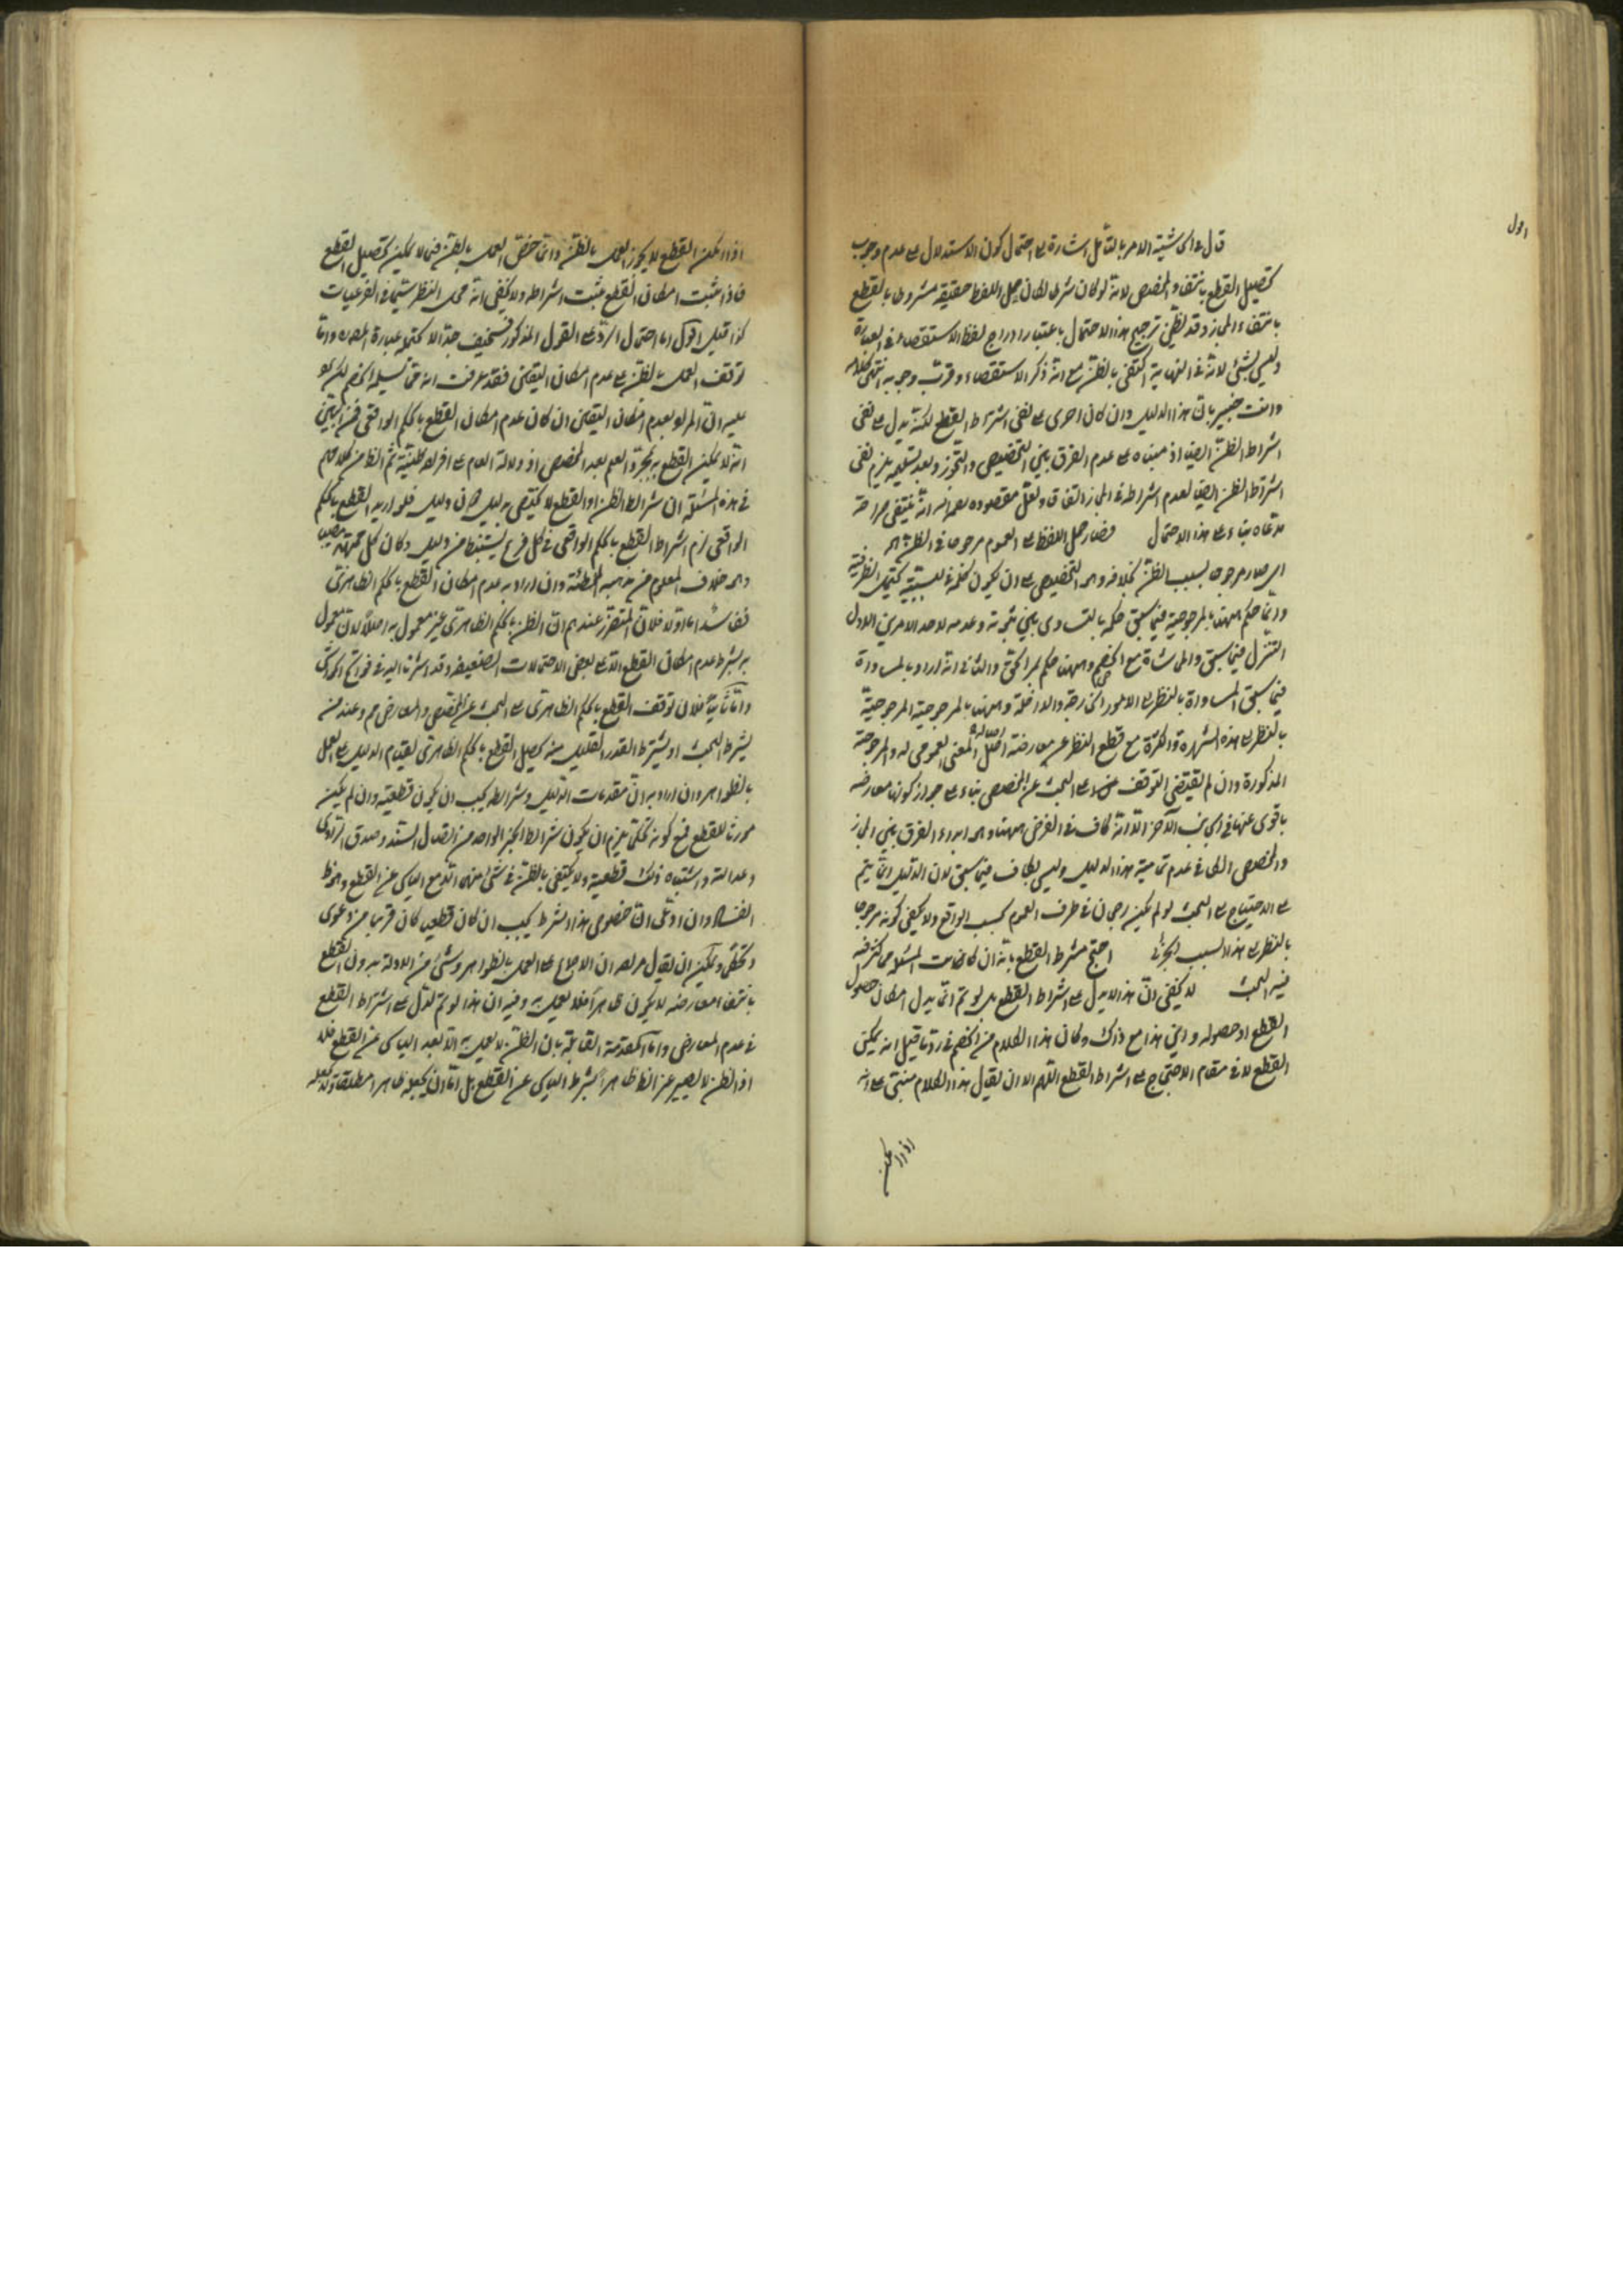 اول
قال في الحاشية الامر بالتأمل اشارة الى احتمال كون الاستدلال على عدم وجوب
تحصيل القطع بانتفاء المخصص لانه لو كان شرطا لكان حمل اللفظ حقيقة مشروطا بالقطع
بانتفاء المجاز وقد يظن ترجيح هذا الاحتمال باعتبار ادراج لفظ الاستقصاء في العبارة
وليس بشئ لانه في النهاية اكتفى بالظن مع انه ذكر الاستقصاء وقرب وجوبه انتهى كلامه
وانت خبير بان هذا الدليل وان كان احرى على نفى اشتراط القطع لكنه يدل على نفى
اشتراط الظن ايضا اذ مبناه على عدم الفرق بين التخصيص والتجوز وبعد تسليمه يلزم نفى
اشتراط الظن ايضا لعدم اشتراطه في المجاز اتفاقا ولعل مقصوده رحمه الله انه ينتفى صراحة
مدعاه بناء على هذا الاحتمال فصار حمل اللفظ على العموم مرجوحا في الظن
اى صار مرجوحا بسبب الظن بخلافه وهو التخصيص على ان يكون كلمة في للسببية يحتمل الظرفية
وانما حكم ههنا بالمرجوحية فيما سبق حكم بالتساوى بين ثبوته وعدمه لاحد الامرين الاول
التنزل فيما سبق والمماشاة مع الخصم وههنا حكم بمر الحق والثانى انه اراد بالمساواة
فيما سبق المساواة بالنظر الى الامور الخارجة والداخلة وههنا بالمرجوحية المرجوحية
بالنظر الى هذه الشهرة والكثرة مع قطع النظر عن معارضة اصالة المعنى العمومى له والمرجوحية
المذكورة وان لم يقتض التوقف على البحث عن المخصص بناء على جواز كونها معارضه
باقوى عنها في الجانب الآخر الا انه كاف في الغرض ههنا وهو ابداء الفرق بين المجاز
والمخصص اى في عدم تمامية هذا الدليل وليس بكاف فيما سبق لان الدليل انما يتم
على الاحتياج الى البحث لو لم يكن رجحان في طرف العموم بحسب الواقع ولا يكفى كونه مرجوحا
بالنظر الى هذا السبب الجزئى احتج مشترط القطع بانه ان كانت المسئلة مما كثر فيه
فيه البحث لا يخفى ان هذا لا يدل على اشتراط القطع بل لو تم انما يدل امكان حصول
القطع او حصوله واين هذا مع ذاك وكان هذا الكلام من الخصم في رد ما قيل انه يمكن
القطع لا في مقام الاحتجاج على اشتراط القطع اللهم الا ان يقال هذا الكلام مبنى على انه
اذا امكن
اذا امكن القطع لا يجوز العمل بالظن وانما خص العمل بالظن فيما لا يمكن تحصيل القطع
فاذا ثبت امكان القطع ثبت اشتراطه ولا يخفى انه محل النظر سيما في الفرعيات
كذا قيل اقول اما احتمال الرد على القول المذكور فسخيف جدا لا يحتمله عبارة المصر واما
توقف العمل بالظن على عدم امكان اليقين فقد عرفت انه مما تسليمه الخصم لكن
عليه ان المراد بعدم امكان اليقين ان كان عدم امكان القطع بالحكم الواقعى فمن البين
انه لا يمكن القطع به بمجرد العلم بعدم المخصص اذ دلالة العام على افراده ظنية ثم الظاهر من كلامهم
في هذه المسئلة ان شرائط الظن او القطع لا يختص بدليل دون دليل فلو اريد القطع بالحكم
الواقعى لزم اشتراط القطع بالحكم الواقعى في كل فرع يستنبط من دليل وكان كل مجتهد مصيب
وهو خلاف المعلوم من مذهب المخطئة وان اراد به عدم امكان القطع بالحكم الظاهرى
ففاسد اما اولا فلان المتقرر عندهم ان الظن بالحكم الظاهرى غير معمول به اصلا لا ان معمول
به بشرط عدم امكان القطع الا على بعض الاحتمالات الضعيفة وقد اشرنا اليه في فواتح الحواشى
واما ثانيا فلان توقف القطع بالحكم الظاهرى على البحث عن المخصص والمعارض مم وعند من
يشترط البحث او يشترط القدر القليل منه يحصل القطع بالحكم الظاهرى لقيام الدليل على العمل
بالظواهر وان اراد به ان مقدمات الدليل وشرائطه يجب ان يكون قطعية وان لم يكن
مورثا للقطع فمع كونه تحكما يلزم ان يكون شرائط الخبر الواحد من اتصال السند وصدق الراوى
وعدالته واشتباه ذلك قطعية ولا يكتفى بالظن في شئ منها الا مع الياس عن القطع وهو ظ
الفساد وان ادعى ان خصوص هذا الشرط يجب ان كان قطعيا كان قريبا من دعوى
وتحكمى ويمكن ان يقال مراده ان الاجماع على العمل بالظواهر وشئ من الادلة بدون القطع
بانتفاء معارضه لا يكون ظاهرا فلا يعمل به وفيه ان هذا لو تم لدل على اشتراط القطع
في عدم المعارض واما المقدمة القائلة بان الظن لا يعمل به الا بعد الياس عن القطع فلا
اذ الظن لا يصير عن الظ ظاهرا بشرط الياس عن القطع بل اما ان يجعله ظاهرا مطلقا او لا يجعله